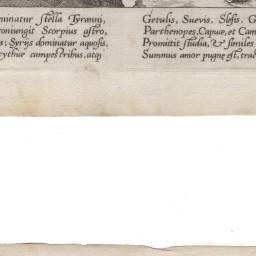 minatur Stella Tyranni,
oniungit Scorpius astro,
s; Syrijs dominatur aquosis,
cythiæ campestribus, atq;
Getulis, Suevis, Slesis, G
Parthenopes, Capuæ, et Cam
Promittit studia, & similes
Summus amor pugnę est, trac